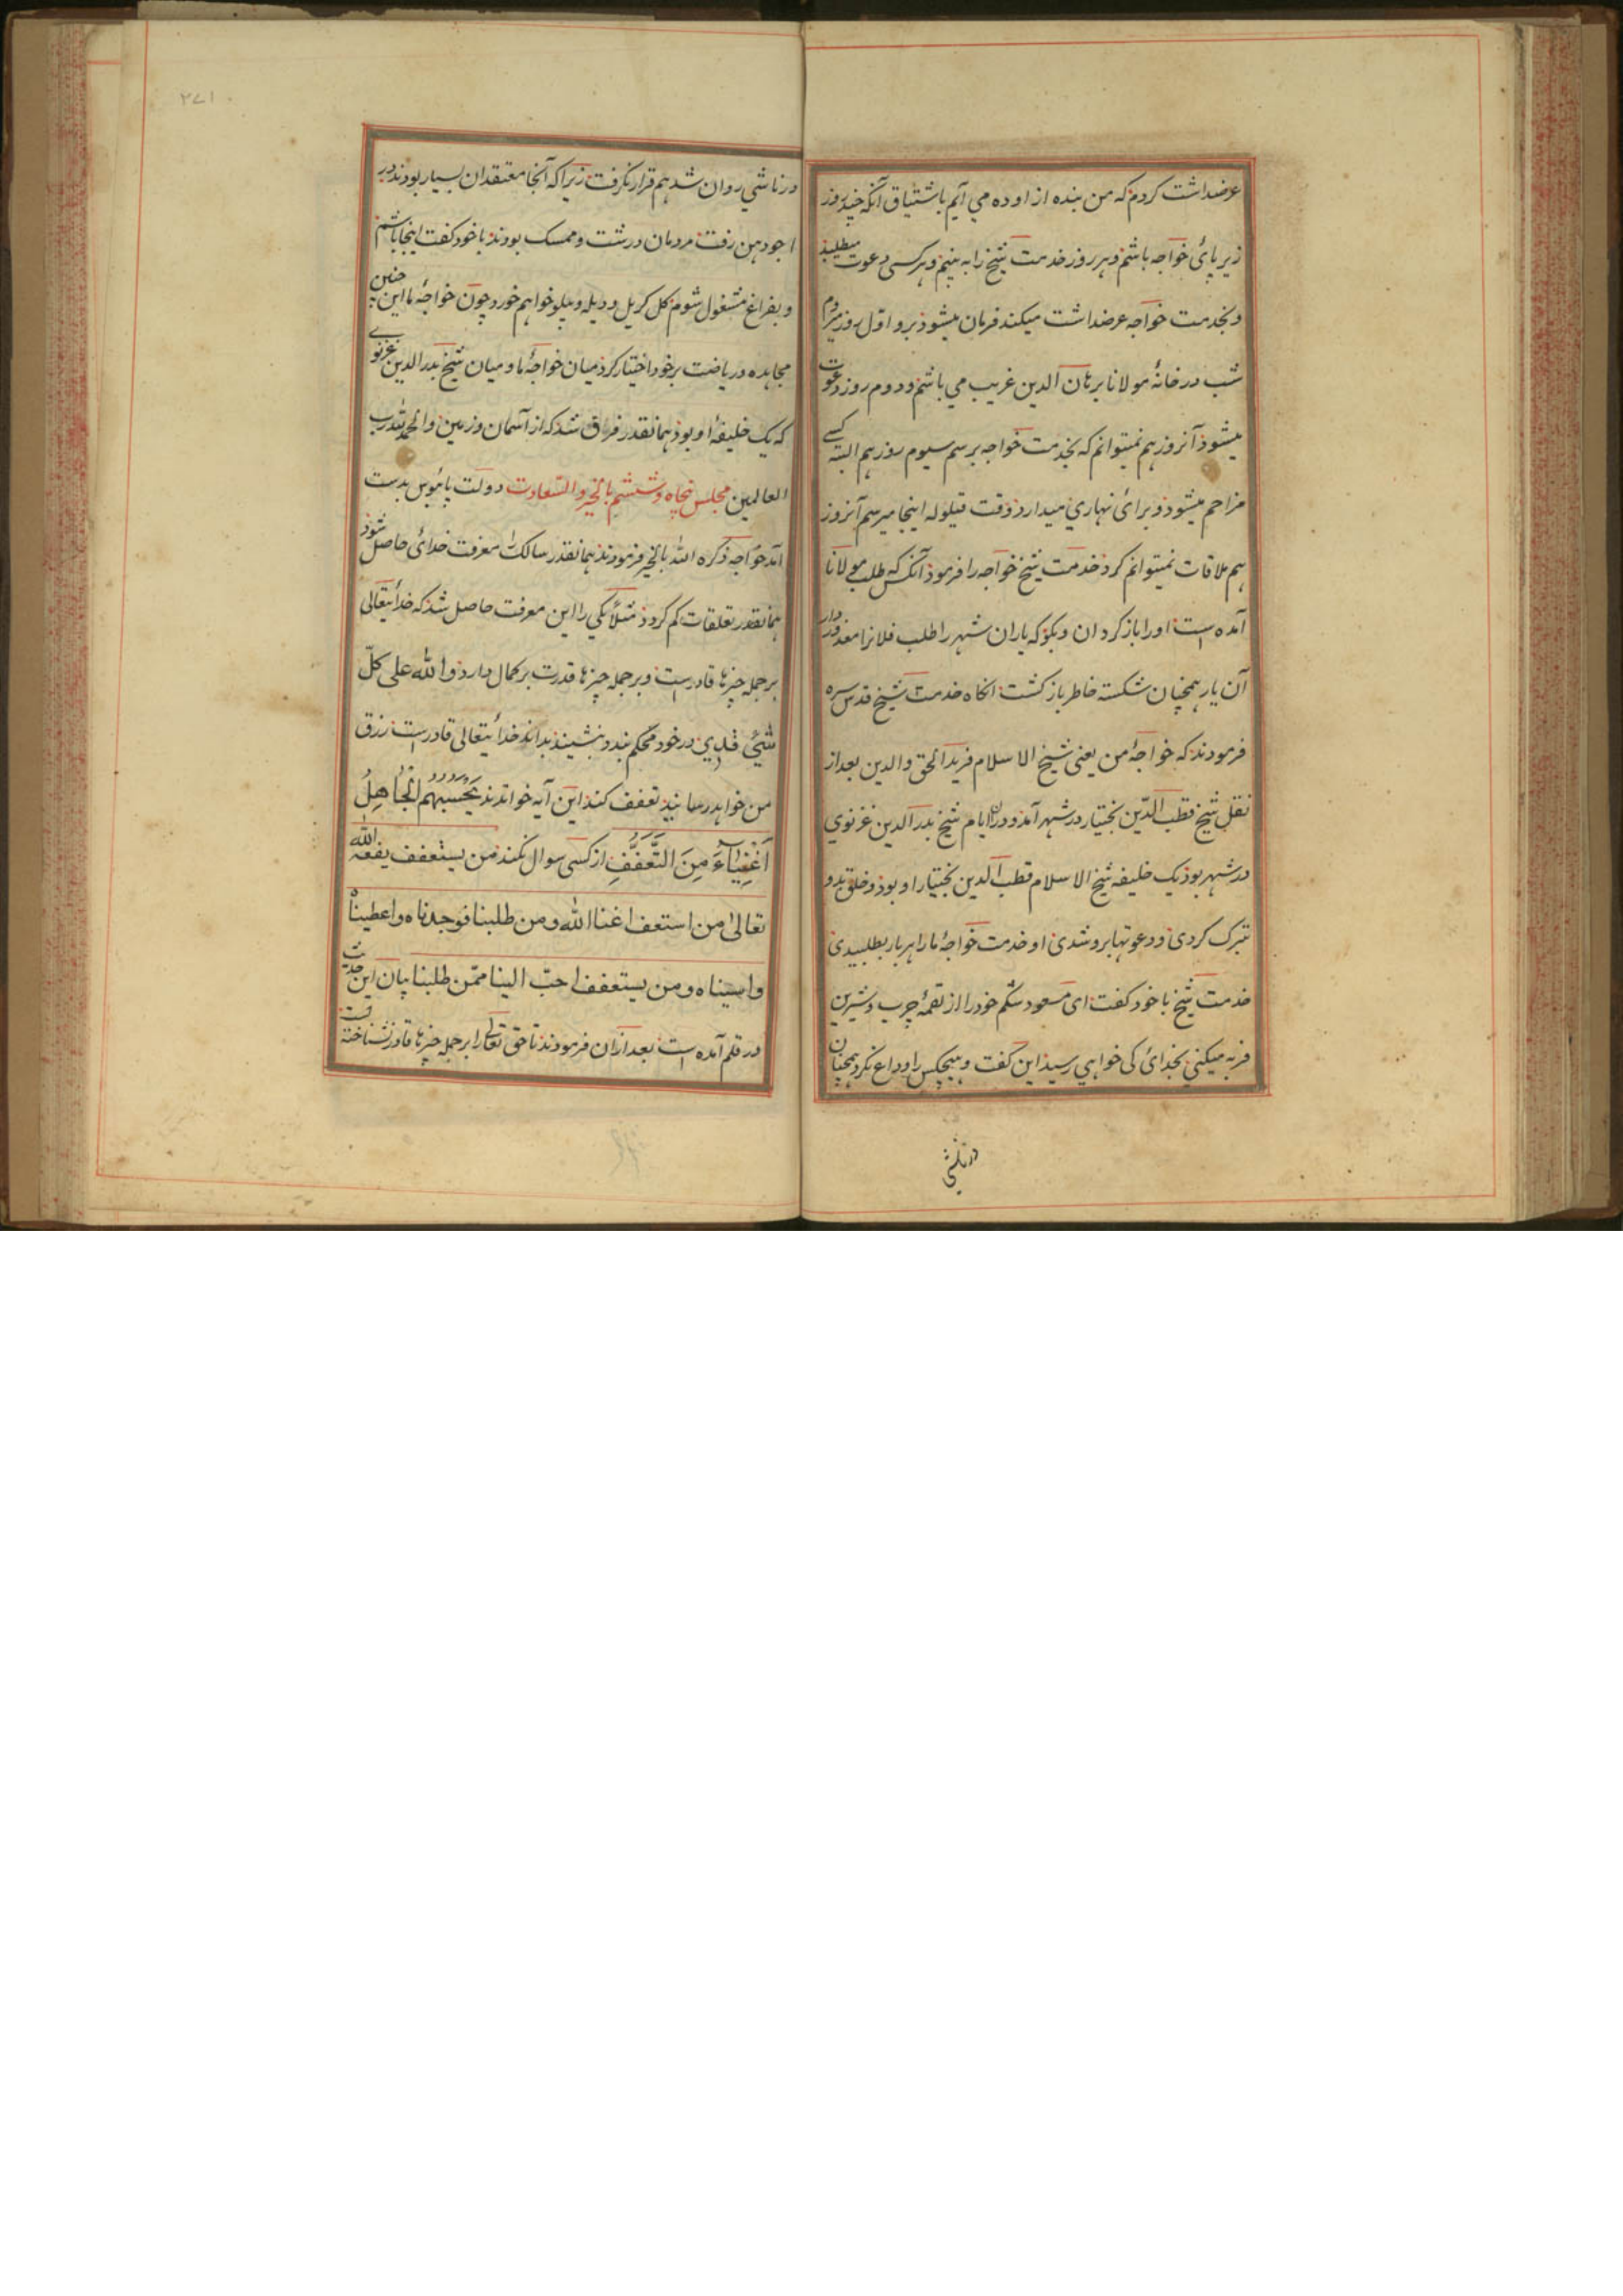 عرضداشت کردم که من بنده از اوده می آیم باشتیاق آنکه چند روز
زیر پائ خواجه باشم و هر روز خدمت شیخ را به بینم و هر کسی دعوت میطلبد
و بخدمت خواجه عرضداشت میکند فرمان میشود برو اول روز میروم
شب در خانهٔ مولانا برهان الدین غریب می باشم و دوم روز دعوت
میشود آنروز هم نمیتوانم که بخدمت خواجه برسم سیوم روز هم البته کسے
مزاحم میشود و برائ نهاری میدارد وقت قیلوله اینجا میرسم آنروز
هم ملاقات نمیتوانم کرد خدمت شیخ خواجه را فرمود آنکس که طلب مولانا
آمده است او را باز کردان و بکو که یاران شهر را طلب فلانرا معذور دار
آن یار همچنان شکسته خاطر باز کشت انکاه خدمت شیخ قدس سره
فرمودند که خواجهٔ من یعنی شیخ الاسلام فرید الحق والدین بعد از
نقل شیخ قطب الدّین بختیار در شهر آمد و دران ایام شیخ بدر الدین غزنوی
در شهر بود یک خلیفه شیخ الاسلام قطب الدین بختیار او بود و خلق بدو
تبرک کردی و دعوتها برو شدی او خدمت خواجهٔ ما را هر بار بطلبیدی
خدمت شیخ با خود کفت ای مسعود شکم خود را از لقمهٔ چرب و شیرین
فربه میکنی بخدائ کی خواهی رسید این کفت و هیچکس را وداع نکرد همچنان
در ناشی
۲۷۱
در ناشی روان شد هم قرار نکرفت زیرا که آنجا معتقدان بسیار بودند در
اجودهن رفت مردمان درشت و ممسک بودند با خود کفت اینجا باشم
و بفراغ مشغول شوم کل کریل و دیله و پیلو خواهم خورد چون خواجهٔ ما این چنین
مجاهده و ریاضت بر خود اختیار کرد میان خواجهٔ ما و میان شیخ بدر الدین غزنوے
که یک خلیفهٔ او بود همانقدر فراق شد که از آسمان و زمین والحمد لله رب
العالمین مجلس پنجاه و ششم بالخیر والسّعادت دولت پائبوس بدست
آمد خواجه ذکره الله بالخیر فرمودند همانقدر سالک را معرفت خدائ حاصل شود
همانقدر تعلقات کم کردد مثلاً یکی را این معرفت حاصل شد که خدائیتعالی
بر جمله چیزها قادر است و بر جمله چیزها قدرت بر کمال دارد والله علی کلّ
شئ قدیر در خود محکم بندد بنشیند بداند خدائیتعالی قادر است رزق
من خواهد رسانید تعفف کند این آیه خواندند یَحْسَبُهُم الْجَاهِلُ
اَغْنِیَآءَ مِنَ التَّعَفُّفِ از کسی سوال نکند من یستعفف یعفه الله
تعالیٰ من استعف اغناه الله و من طلبنا فوجدناه و اعطیناه
و اسیناه و من یستعفف احبّ الینا ممّن طلبنا بیان این حدیث
در قلم آمده است بعد ازان فرمودند تا حق تعالی را بر جمله چیزها قادر نشناخته است